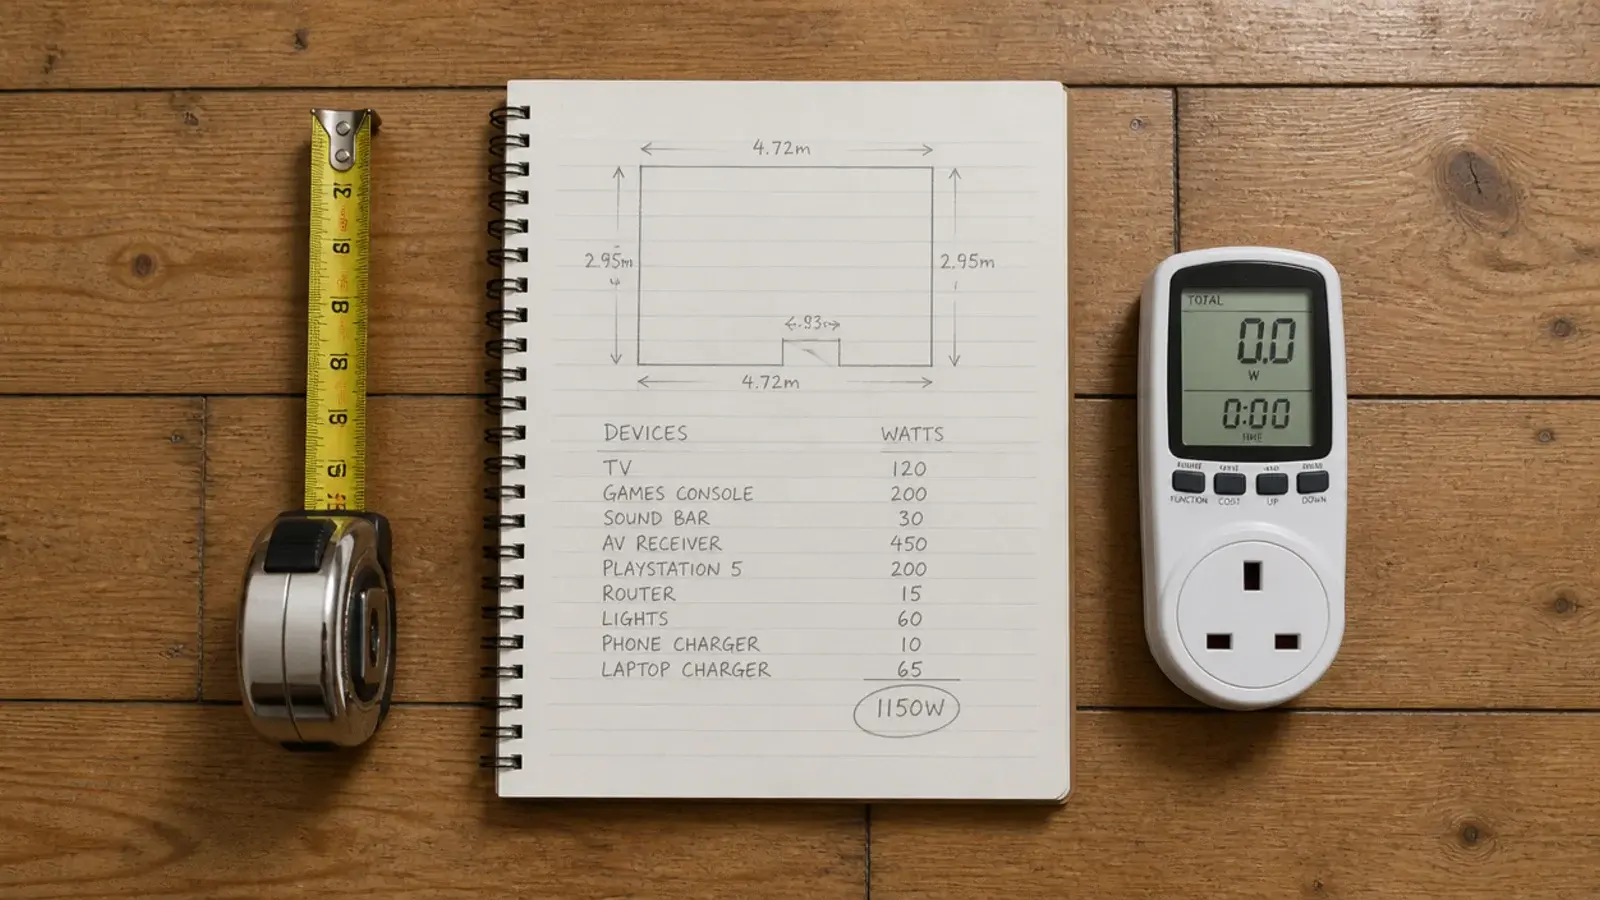 4.72m
2.95m
2.95m
.93
4.72m
DEVICES WATTS
TV 120
GAMES CONSOLE 200
SOUND BAR 30
AV RECEIVER 450
PLAYSTATION 5 200
ROUTER 15
LIGHTS 60
PHONE CHARGER 10
LAPTOP CHARGER 65
1150W
TOTAL
0.0
W
0:00
FUNCTION COST UP DOWN